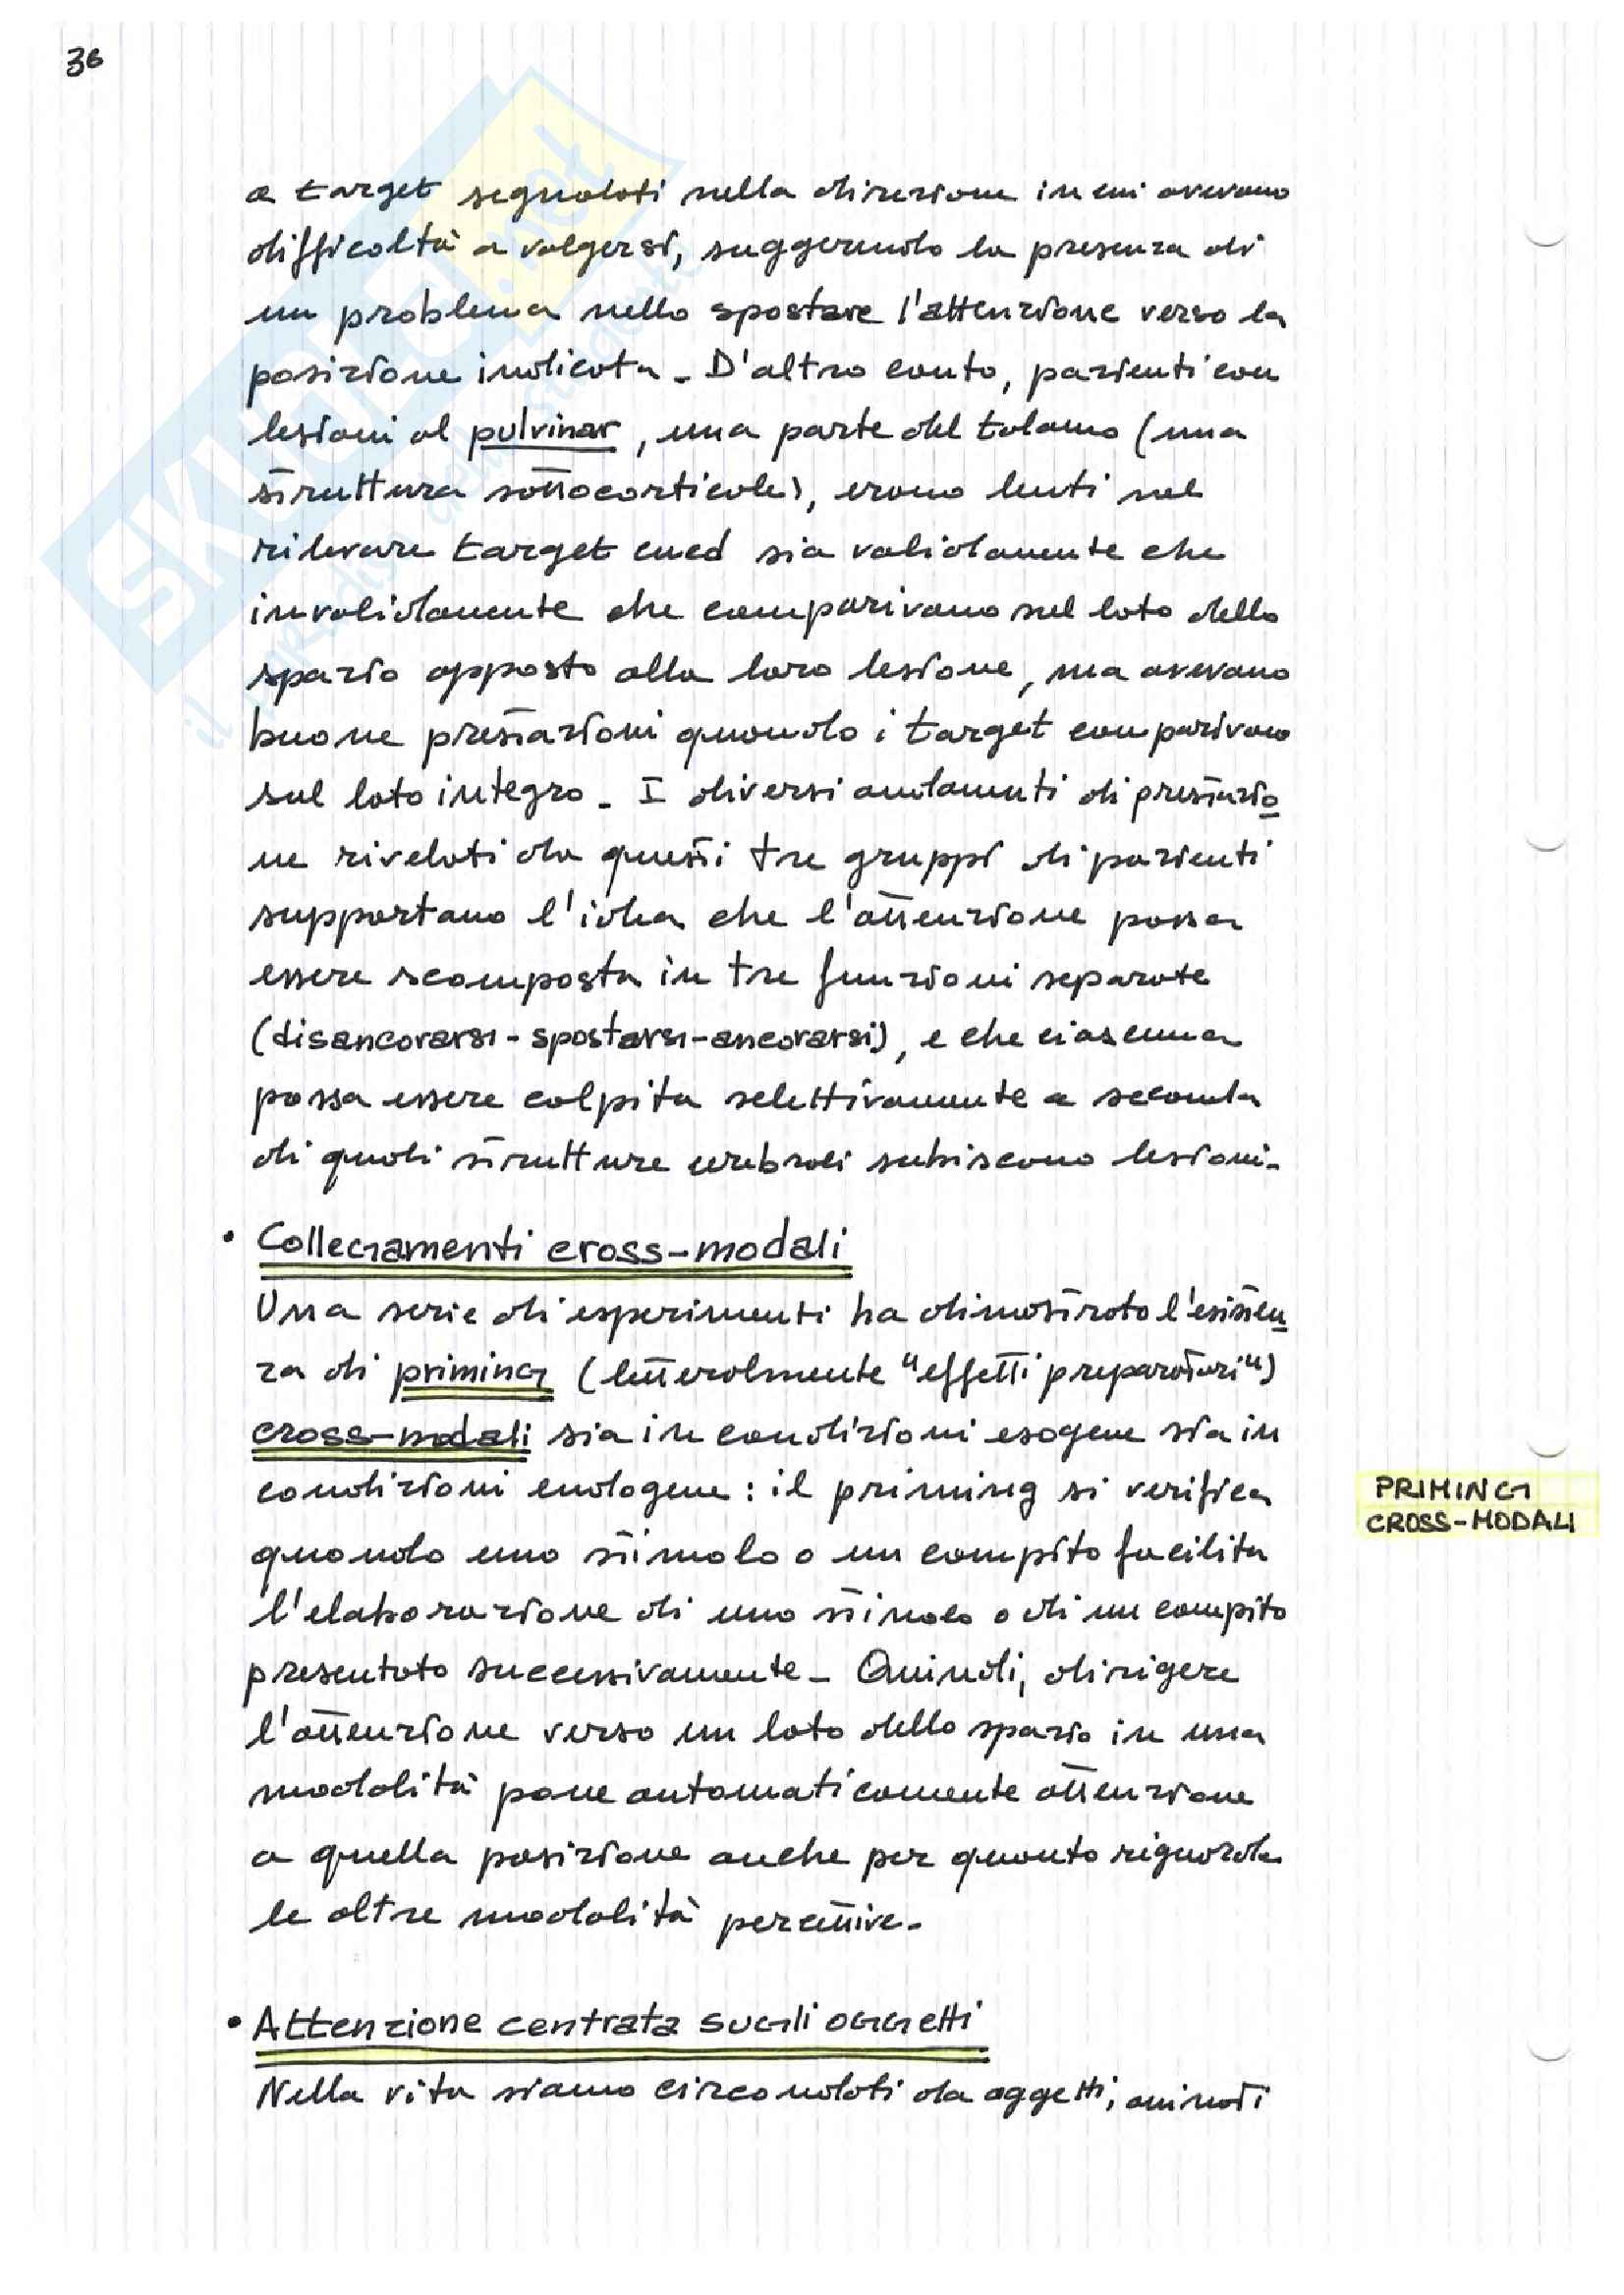 36
a target segnalati nella direzione in cui avevano
difficoltà a volgersi, suggerendo la presenza di
un problema nello spostare l'attenzione verso la
posizione indicata - D'altro canto, pazienti con
lesioni al pulvinar, una parte del talamo (una
struttura sottocorticale), erano lenti nel
rilevare target cued sia validamente che
invalidamente che comparivano nel lato dello
spazio opposto alla loro lesione, ma avevano
buone prestazioni quando i target comparivano
sul lato integro - I diversi andamenti di prestazio
ne rivelati da questi tre gruppi di pazienti
supportano l'idea che l'attenzione possa
essere scomposta in tre funzioni separate
(disancorarsi - spostarsi - ancorarsi), e che ciascuna
possa essere colpita selettivamente a seconda
di quali strutture cerebrali subiscono lesioni -
• Collegamenti cross-modali
Una serie di esperimenti ha dimostrato l'esisten
za di priming (letteralmente "effetti preparatori")
cross-modali sia in condizioni esogene sia in
condizioni endogene : il priming si verifica
PRIMING
CROSS-MODALI
quando uno stimolo o un compito facilita
l'elaborazione di uno stimolo o di un compito
presentato successivamente - Quindi, dirigere
l'attenzione verso un lato dello spazio in una
modalità pone automaticamente attenzione
a quella posizione anche per quanto riguarda
le altre modalità percettive -
• Attenzione centrata sugli oggetti
Nella vita siamo circondati da oggetti, animati
SKUOLA.net